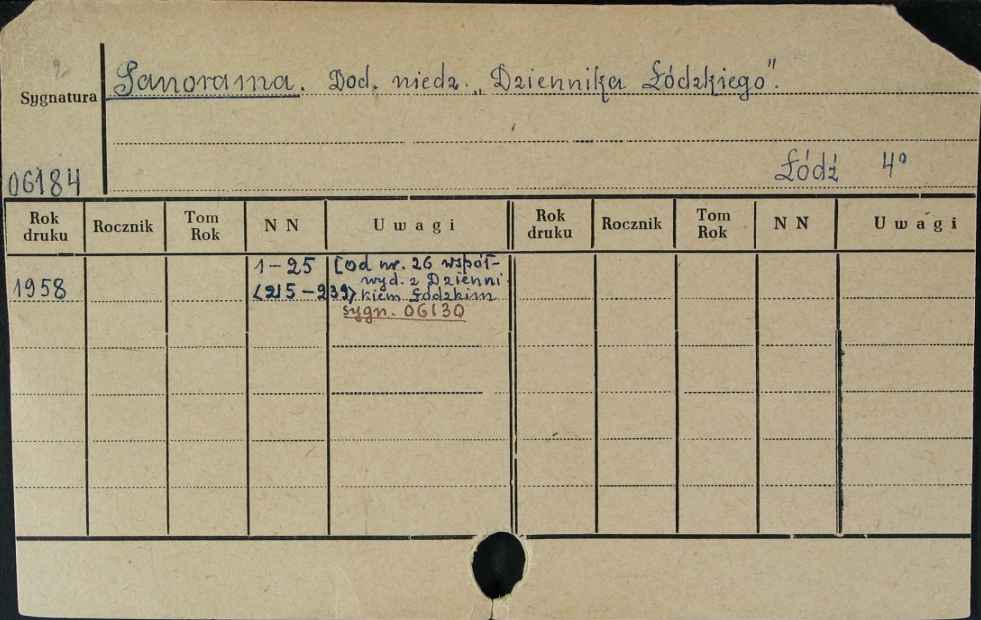 Panorama. Dod. niedz. „Dziennika Łódzkiego".
Sygnatura
Łódź 4°
06184
Rok druku Rocznik Tom Rok N N Uwagi Rok druku Rocznik Tom Rok N N Uwagi
1958 1-25 [od nr. 26 współ-
wyd. z Dzienni
<215-239> kiem Łódzkim
sygn. 06130